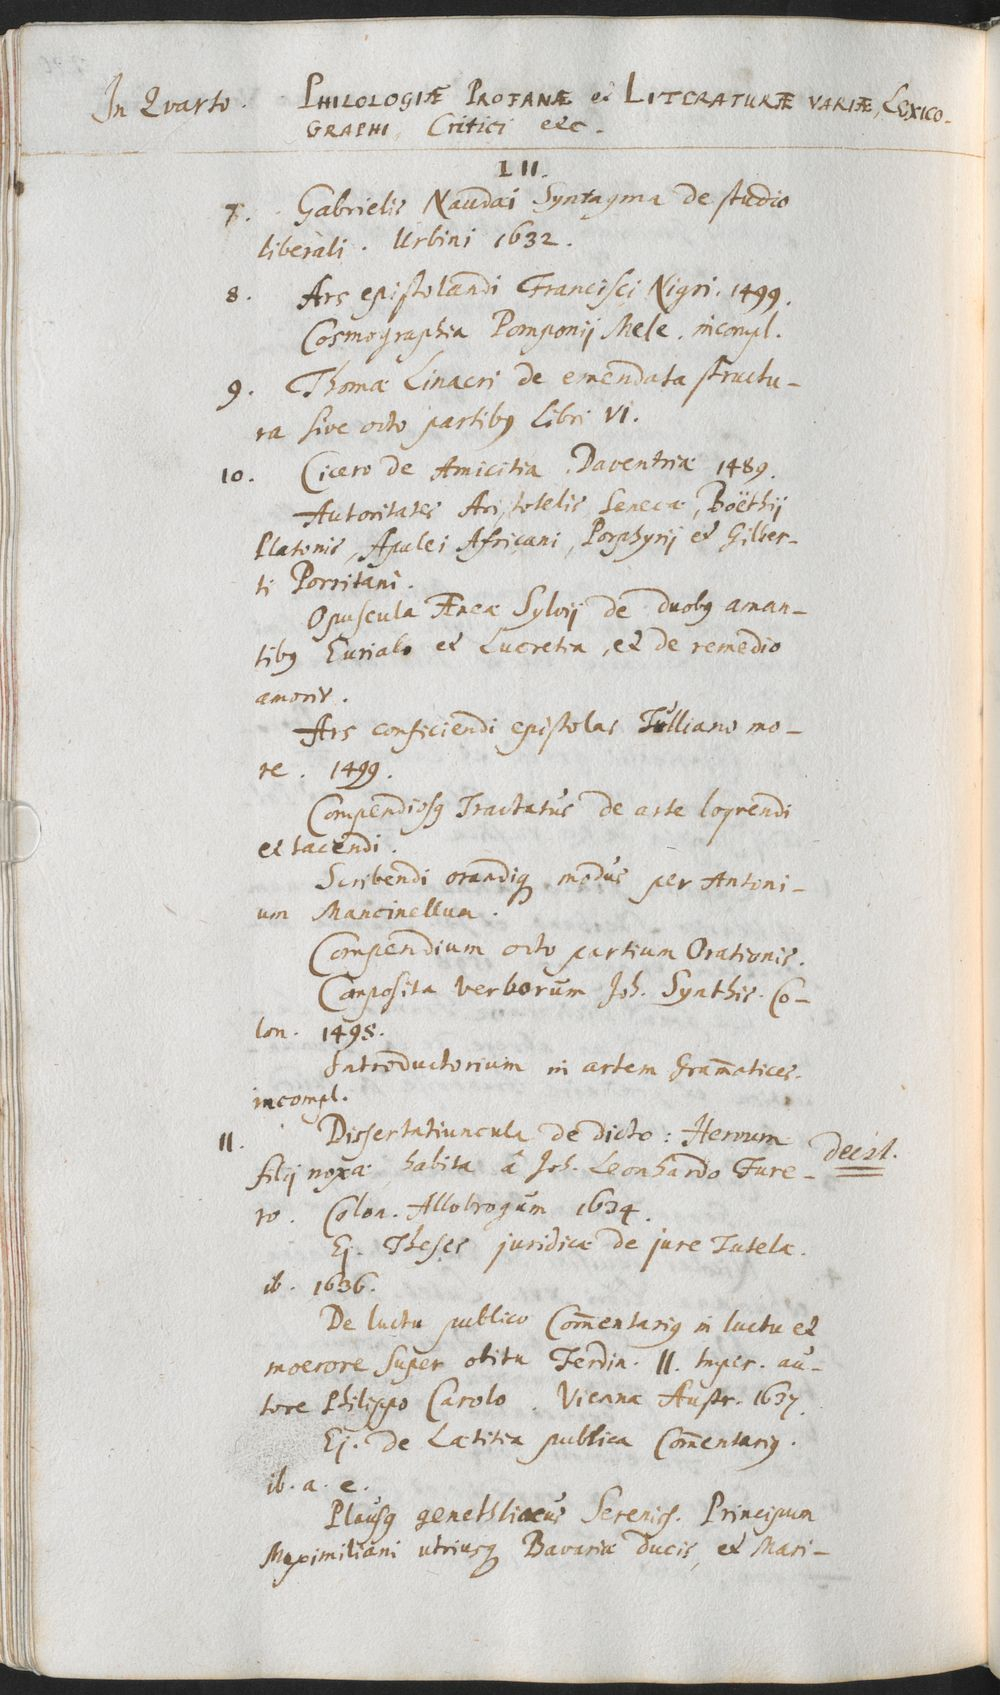 In Qvarto. PHILOLOGIÆ PROFANÆ et LITERATURÆ VARIÆ, LEXICO-
GRAPHI, Critici etc.
LII.
7. Gabrielis Naudæi Syntagma de studio
liberali. Urbini 1632.
8. Ars epistolandi Francisci Nigri. 1499.
Cosmographia Pomponij Mele. incompl.
9. Thomæ Linacri de emendata structu-
ra sive octo partibq Libri VI.
10. Cicero de Amicitia. Daventriæ 1489.
Autoritates Aristotelis, Senecæ, Boëthij
Platonis, Apulei Africani, Porphyrij et Gilber-
ti Porritani.
Opuscula Æneæ Sylvij de duobq aman-
tibq Eurialo et Lucretia, et de remedio
amoris.
Ars conficiendi epistolas Tulliano mo-
re. 1499.
Compendiosq Tractatus de arte loqvendi
et tacendi.
Scribendi orandiq modus per Antoni-
um Mancinellum.
Compendium octo partium Orationis.
Composita verborum Joh. Synthis. Co-
lon. 1498.
Introductorium in artem Gram̄atices.
incompl.
11. Dissertatiuncula de dicto: Herum
filij noxæ, habita à Joh. Leonhardo Fure-
deest.
ro. Colon. Allobrogum 1634.
Ej. Theses juridicæ de jure Tutelæ.
ib. 1636.
De luctu publico Com̄entariq in luctu et
moerore super obitu Ferdin. II. Imper. au-
tore Philippo Carolo. Viennæ Austr. 1637.
Ej. De Lætitia publica Com̄entariq.
ib. a. e.
Plausq genethliacus Sereniss. Principum
Maximiliani utriusq Bavariæ ducis, et Mari-